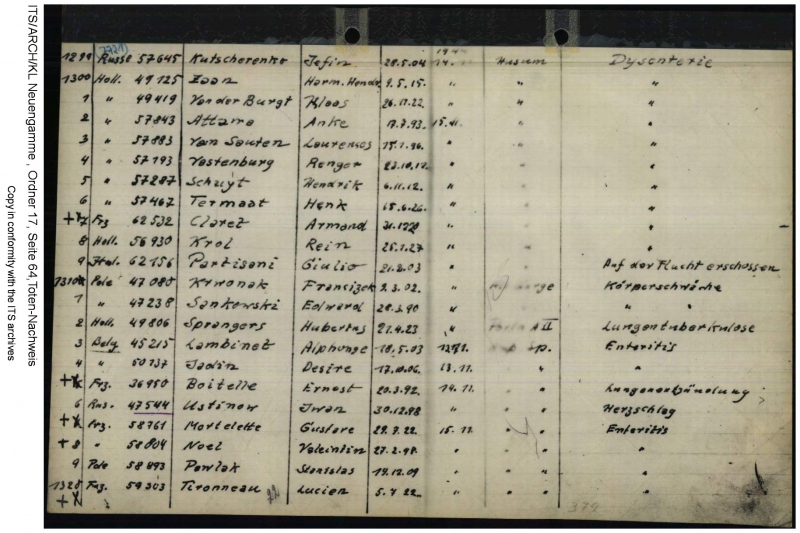 ITS/ARCH/KL Neuengamme, Ordner 17, Seite 64, Toten-Nachweis
Copy in conformity with the ITS archives
1299 Russe 57645 Kutscherenko Jefin 28.5.04 14. Husum Dysenterie
1300 Holl. 49125 Zaan Harm. Hendr 9.5.15. " "
1 " 49419 Van der Burgt Klaas 26.11.22. " " "
2 " 57843 Attama Anke 17.7.93. 15.11. " "
3 " 57883 Van Sauten Laurenses 15.1.96. " " "
4 " 57193 Vastenburg Renger 23.10.17. " " "
5 " 57287 Schuyt Hendrik 6.11.12. " " "
6 " 57467 Termaat Henk 15.6.26. " " "
+ 7 Frz 62532 Claret Armand " " "
8 Holl. 56930 Krol Rein 25.1.27 " " "
9 Ital. 62156 Partisani Giulio 21.2.03 " Auf der Flucht erschossen
1310 Pole 47080 Kiwonak Francizek 9.3.02. " Körperschwäche
1 " 47238 Sankowski Edward 28.3.90 " " "
2 Holl. 49806 Sprangers Hubertus 21.4.23 " II Lungentuberkulose
3 Belg 45215 Lambinet Alphonge 18.5.03 Enteritis
4 " 50137 Jadin Desire 17.10.06. 13.11. " "
+ Frz. 36950 Boitelle Ernest 20.3.92 14.11. " " Lungenentzündung
6 Rus. 47544 Ustinow Iwan 30.12.98 " " " Herzschlag
+ Frz. 58761 Mortelette Gustave 29.7.22. 15.11. " " Enteritis
+ 8 " 58804 Noel Valeintin 27.2.98. " " " "
9 Pole 58893 Pawlak Stanislas 19.12.09 " " " "
1320 Frz. 59303 Tironneau Lucien 5.7.22. " " " "
+
22
379